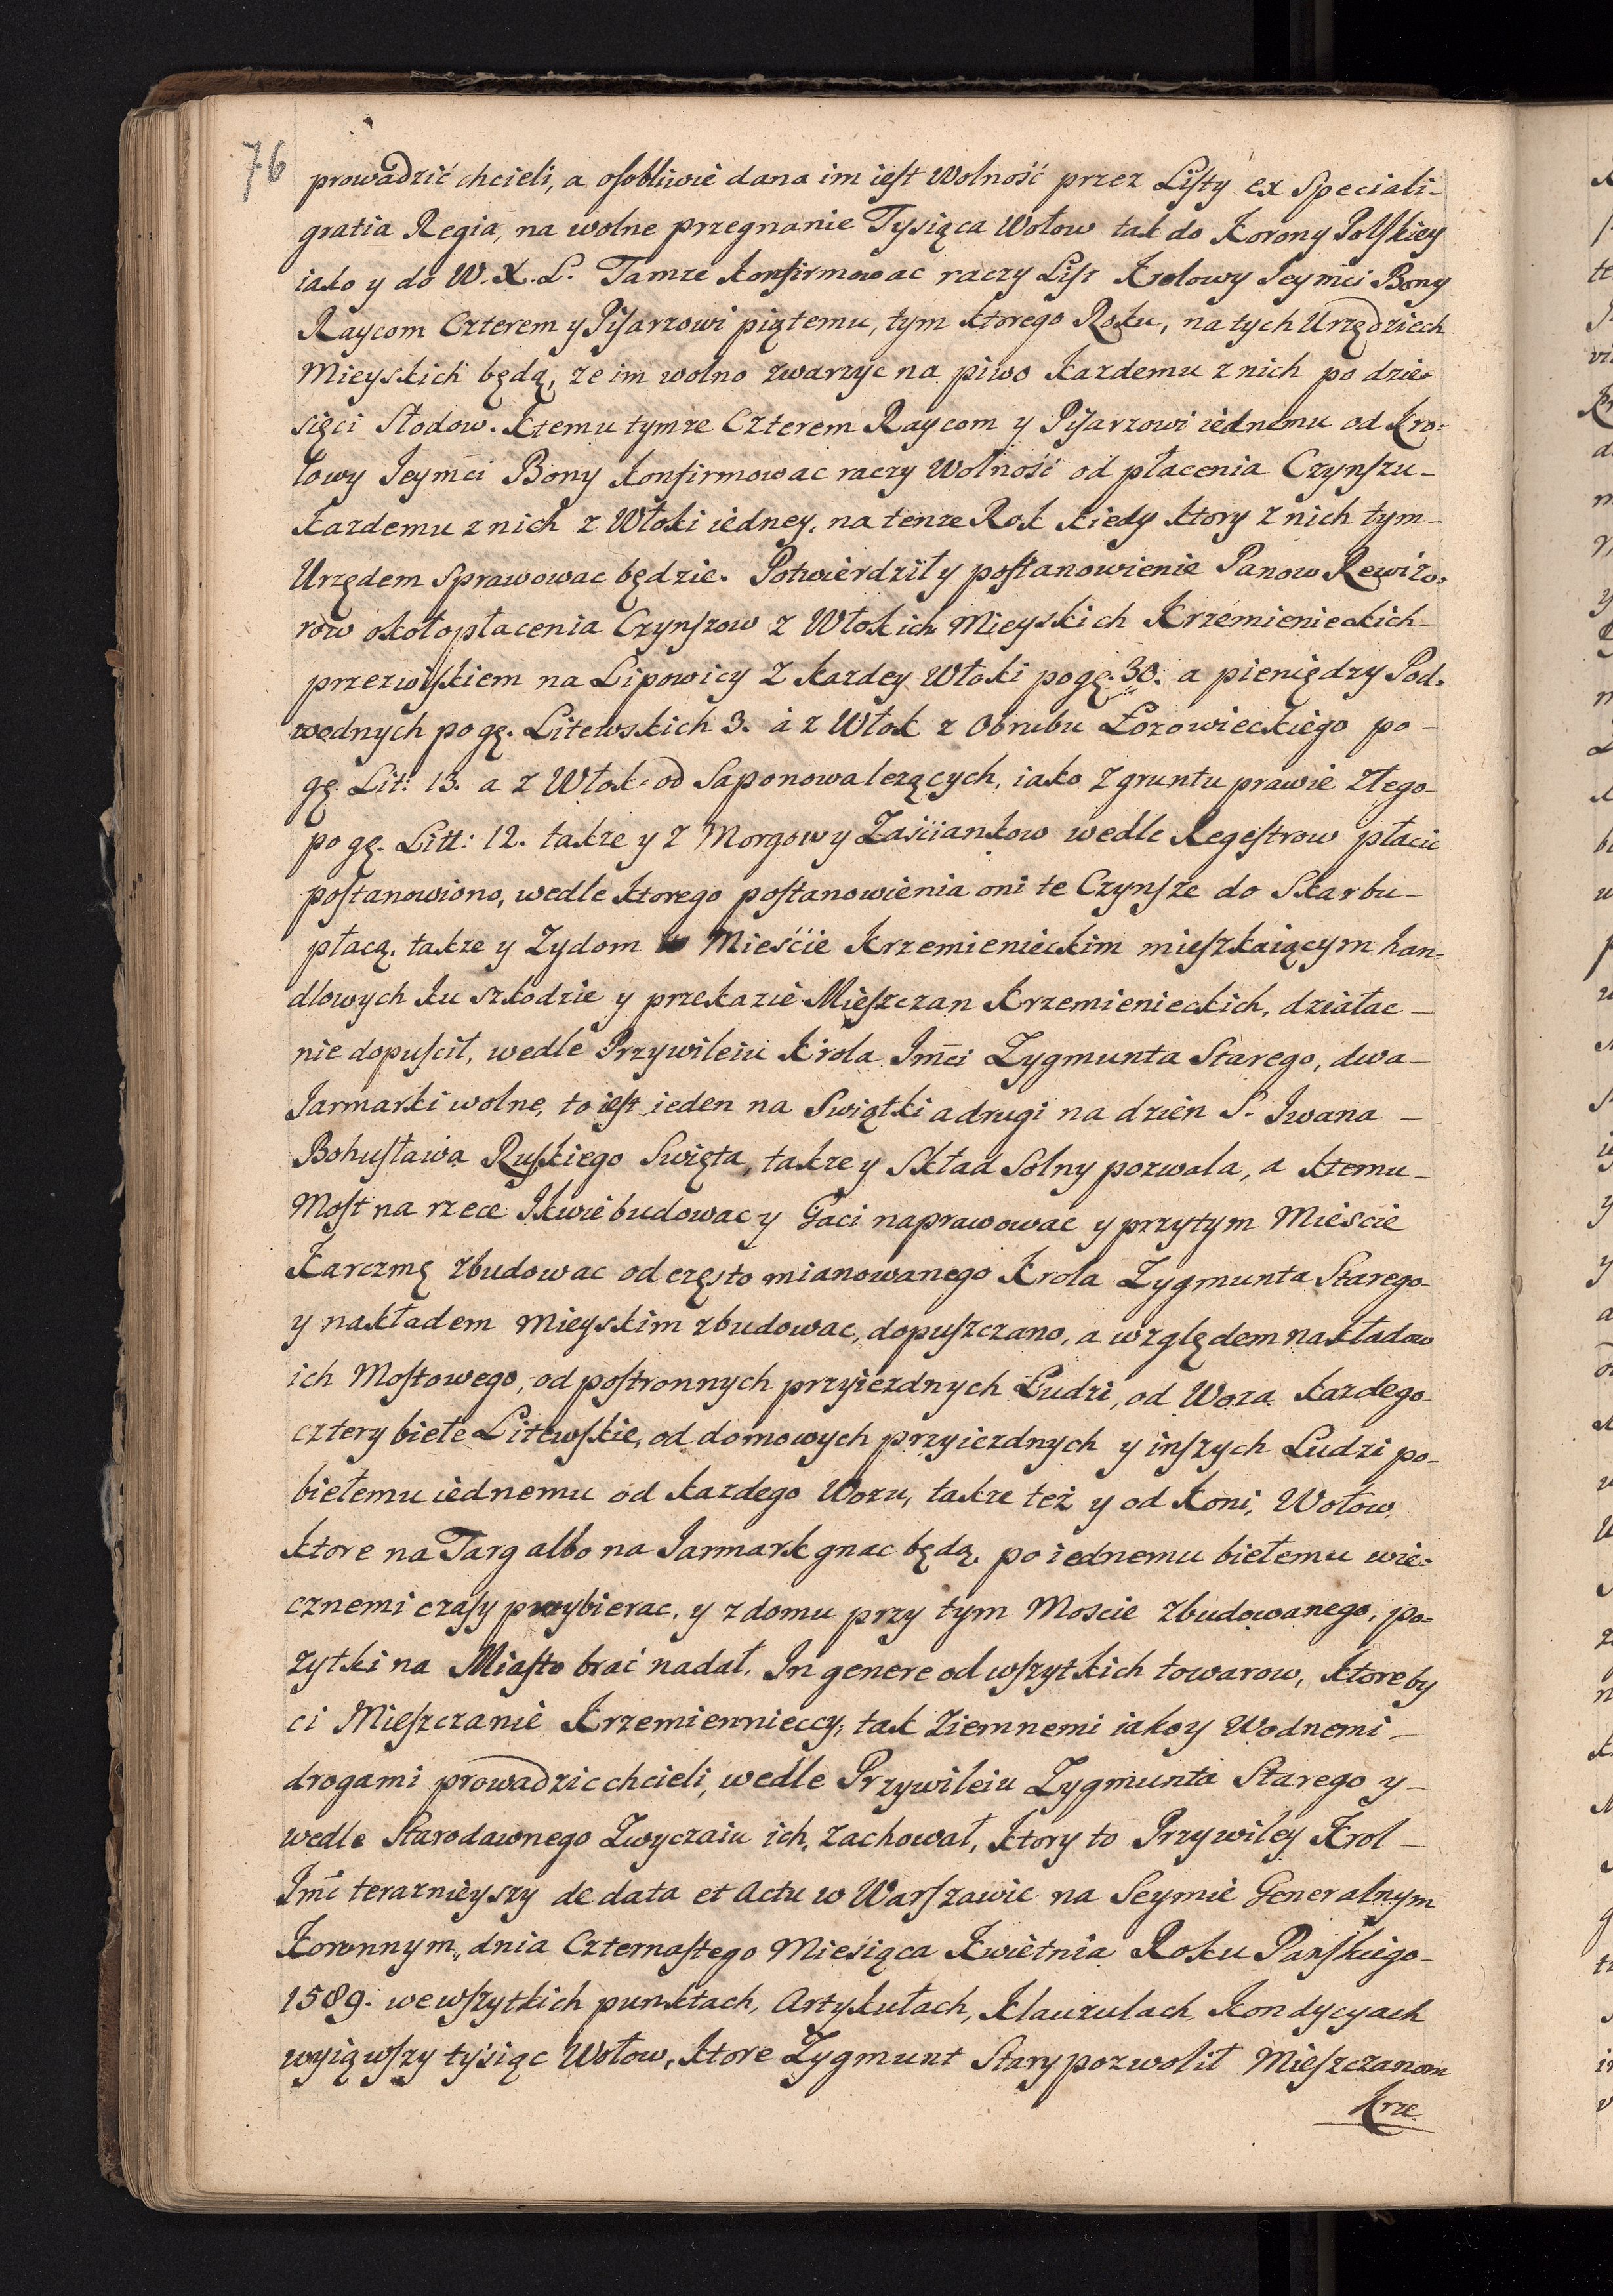 76
prowadzić chcieli, a osobliwie dana im iest Wolność przez Listy ex Speciali-
gratia Regia, na wolne przegnanie Tysiąca Wołow tak do Korony Polskiey
iako y do W. X. L. Tamze konfirmowac raczy List Krolowy Jeymci Bony
Raycom Czterem y Pisarzowi piątemu, tym ktorego Roku, na tych Urzędziech
Mieyskich będą, ze im wolno zwarzyc na piwo kazdemu z nich po dzie-
sięci Słodow. Ktemu tymze Czterem Raycom y Pisarzowi iednemu od Kro-
lowy Jeymci Bony konfirmowac raczy Wolność od płacenia Czynszu-
kazdemu z nich z Włoki iedney, na tenze Rok kiedy ktory z nich tym-
Urzędem Sprawowac będzie. Potwierdził y postanowienie Panow Rewizo-
row około płacenia Czynszow z Włokich Mieyskich Krzemienieckich-
przezwiskiem na Lipowicy z kazdey Włoki po gę. 30. a pieniędzy Pod-
wodnych po gę. Litewskich 3. a z Włok z Obrubu Łozowieckiego po-
gę. Lit: 13. a z Włok od Saponowa lezących, iako z gruntu prawie złego-
po gę. Litt: 12. takze y z Morgow y Zaściankow wedle Regestrow płacic
postanowiono, wedle ktorego postanowienia oni te Czynsze do Skarbu-
płacą. takze y Zydom w Mieście Krzemienieckim mieszkaiącym han-
dlowych ku szkodzie y przekazie Mieszczan Krzemienieckich, działac-
nie dopuscił, wedle Przywileiu Krola Jmci Zygmunta Starego, dwa-
Jarmarki wolne, to iest ieden na Swiątki a drugi na dzien S. Iwana-
Bohusława Ruskiego Swięta, takze y Skład Solny pozwala, a ktemu-
Most na rzece Ikwie budowac y Gaci naprawowac y przytym Miescie
Karczmę zbudowac od często mianowanego Krola Zygmunta Starego-
y nakładem Mieyskim zbudowac, dopuszczano, a względem nakładow
ich Mostowego, od postronnych przyiezdnych Ludzi, od Woza kazdego-
cztery biełe Litewskie, od domowych przyiezdnych y inszych Ludzi po-
biełemu iednemu od kazdego Wozu, takze też y od koni, Wołow,
ktore na Targ albo na Jarmark gnac będą, po iednemu biełemu wie-
cznemi czasy przybierac, y z domu przy tym Moscie zbudowanego, po-
zytki na Miasto brać nadał. In genere od wszytkich towarow, ktore by
ci Mieszczanie Krzemiennieccy, tak Ziemnemi iako y Wodnemi-
drogami prowadzic chcieli, wedle Przywileiu Zygmunta Starego y-
wedle Starodawnego Zwyczaiu ich, zachował, ktory to Przywiley Krol-
Jmć teraznieyszy de data et Actu w Warszawie na Seymie Generalnym
Koronnym, dnia Czternastego Miesiąca Kwietnia Roku Panskiego-
1589. we wszytkich punktach, Artykułach, Klauzulach, Kondycyach
wyiąwszy tysiąc Wołow, ktore Zygmunt Stary pozwolił Mieszczanom
Krze